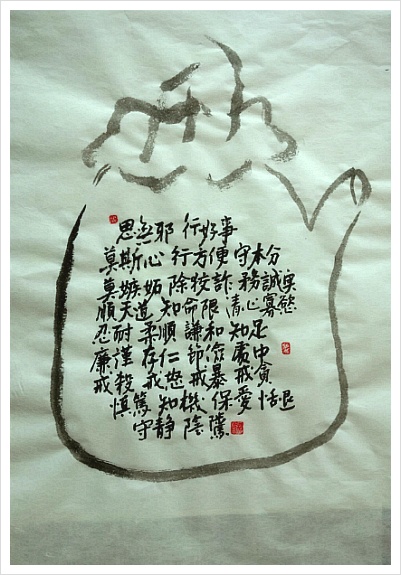 思無耶 行好事
莫斯心 行方便 守本分
莫嫉妬 除狡詐 務誠實
順天道 知命限 清心 寡慾
忍耐 柔順 謙和 知足
廉謹 存仁 節儉 處中
戒殺 戒怒 戒暴 戒貪
慎篤 知機 保愛 恬退
守静 陰騭